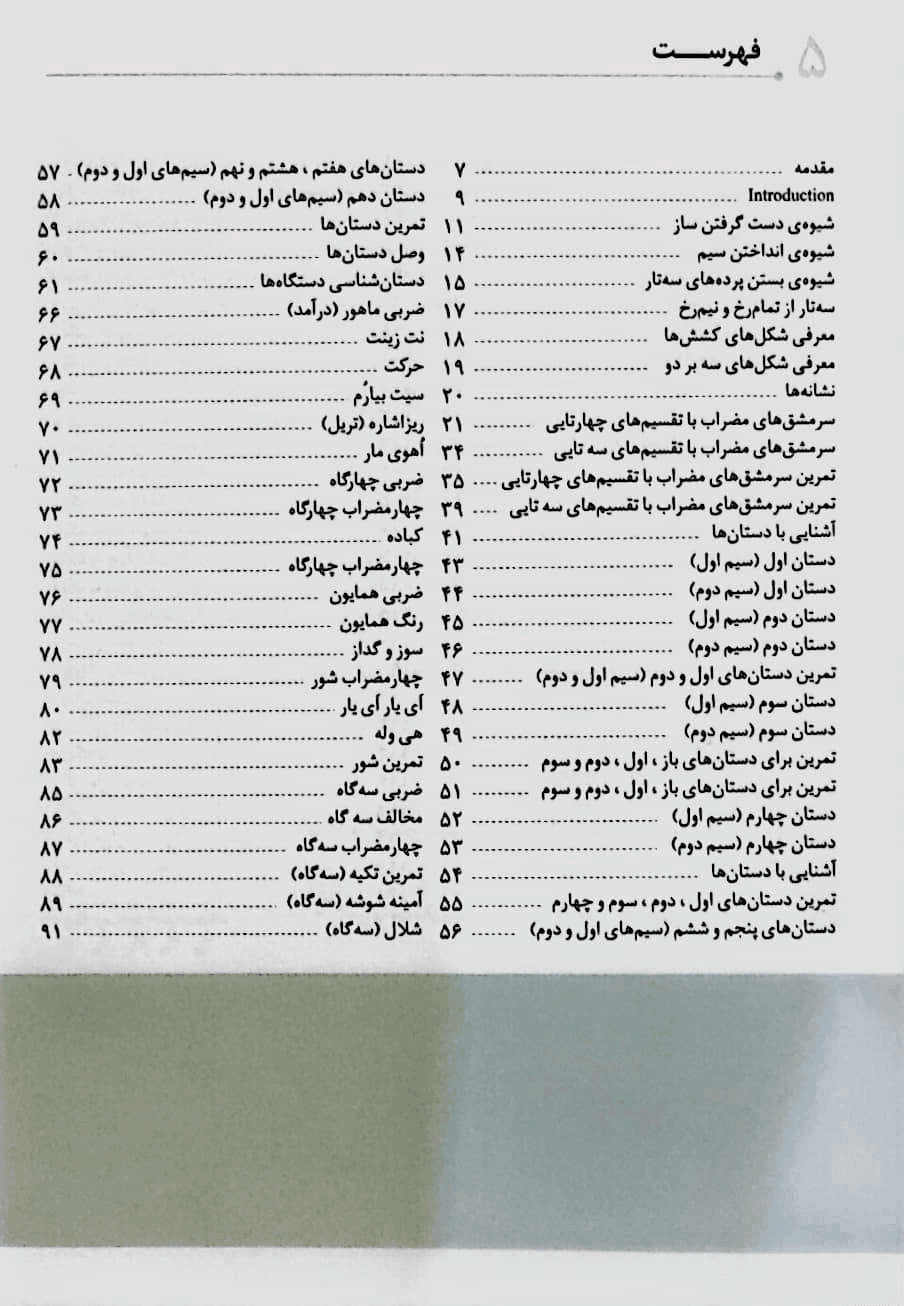 ۵
فهرســـت
مقدمه ............ ۷
Introduction ............ ۹
شیوه‌ی دست گرفتن ساز ............ ۱۱
شیوه‌ی انداختن سیم ............ ۱۴
شیوه‌ی بستن پرده‌های سه‌تار ............ ۱۵
سه‌تار از تمام‌رخ و نیم‌رخ ............ ۱۷
معرفی شکل‌های کشش‌ها ............ ۱۸
معرفی شکل‌های سه بر دو ............ ۱۹
نشانه‌ها ............ ۲۰
سرمشق‌های مضراب با تقسیم‌های چهارتایی ............ ۲۱
سرمشق‌های مضراب با تقسیم‌های سه تایی ............ ۳۴
تمرین سرمشق‌های مضراب با تقسیم‌های چهارتایی .... ۳۵
تمرین سرمشق‌های مضراب با تقسیم‌های سه تایی .... ۳۹
آشنایی با دستان‌ها ............ ۴۱
دستان اول (سیم اول) ............ ۴۳
دستان اول (سیم دوم) ............ ۴۴
دستان دوم (سیم اول) ............ ۴۵
دستان دوم (سیم دوم) ............ ۴۶
تمرین دستان‌های اول و دوم (سیم اول و دوم) ........ ۴۷
دستان سوم (سیم اول) ............ ۴۸
دستان سوم (سیم دوم) ............ ۴۹
تمرین برای دستان‌های باز ، اول ، دوم و سوم ......... ۵۰
تمرین برای دستان‌های باز ، اول ، دوم و سوم ......... ۵۱
دستان چهارم (سیم اول) ............ ۵۲
دستان چهارم (سیم دوم) ............ ۵۳
آشنایی با دستان‌ها ............ ۵۴
تمرین دستان‌های اول ، دوم ، سوم و چهارم ............ ۵۵
دستان‌های پنجم و ششم (سیم‌های اول و دوم) ....... ۵۶
دستان‌های هفتم ، هشتم و نهم (سیم‌های اول و دوم) . ۵۷
دستان دهم (سیم‌های اول و دوم) ............ ۵۸
تمرین دستان‌ها ............ ۵۹
وصل دستان‌ها ............ ۶۰
دستان‌شناسی دستگاه‌ها ............ ۶۱
ضربی ماهور (درآمد) ............ ۶۶
نت زینت ............ ۶۷
حرکت ............ ۶۸
سیت بیارُم ............ ۶۹
ریزاشاره (تریل) ............ ۷۰
اُهوی مار ............ ۷۱
ضربی چهارگاه ............ ۷۲
چهارمضراب چهارگاه ............ ۷۳
کباده ............ ۷۴
چهارمضراب چهارگاه ............ ۷۵
ضربی همایون ............ ۷۶
رنگ همایون ............ ۷۷
سوز و گداز ............ ۷۸
چهارمضراب شور ............ ۷۹
اَی یار اَی یار ............ ۸۰
هی وله ............ ۸۲
تمرین شور ............ ۸۳
ضربی سه‌گاه ............ ۸۵
مخالف سه گاه ............ ۸۶
چهارمضراب سه‌گاه ............ ۸۷
تمرین تکیه (سه‌گاه) ............ ۸۸
آمینه شوشه (سه‌گاه) ............ ۸۹
شلال (سه‌گاه) ............ ۹۱